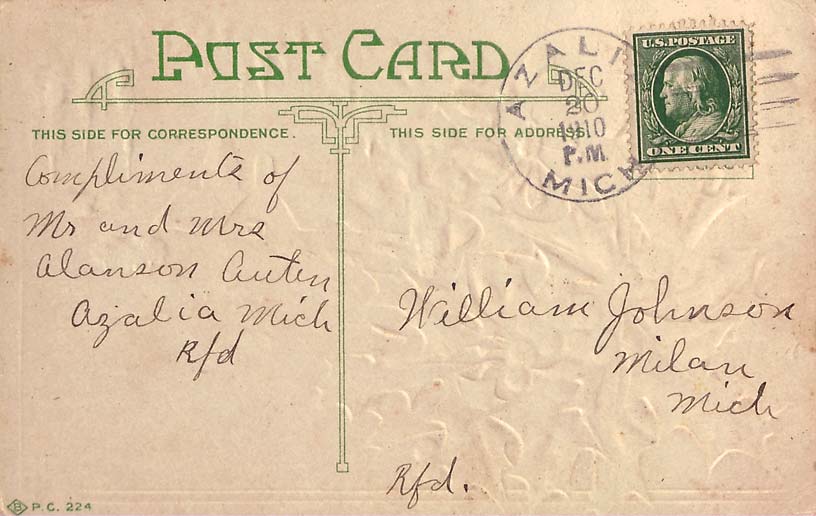 POST CARD
THIS SIDE FOR CORRESPONDENCE.
THIS SIDE FOR ADDRESS.
AZALIA
DEC
20
1910
P.M.
MICH
U.S. POSTAGE
ONE CENT
Compliments of
Mr and Mrs
Alanson Auten
Azalia Mich
Rfd
William Johnson
Milan
Mich
Rfd.
B P.C. 224